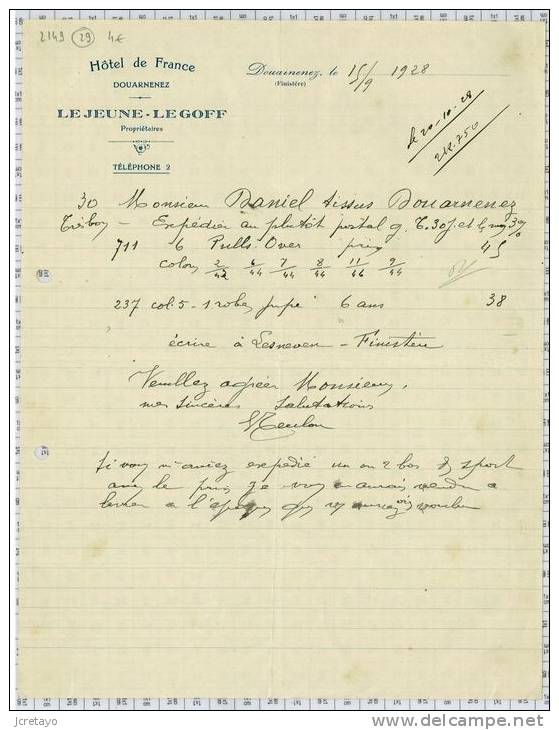 2149 29 4€
Hôtel de France
DOUARNENEZ
LE JEUNE - LE GOFF
Propriétaires
TÉLÉPHONE 2
Douarnenez, le 15/9 1928
(Finistère)
le 20-10-28
212.750
30 Monsieur Daniel tissus Douarnenez
Tréboul - Expédier au plutôt postal g. T. 30 J. et
711 6 Pulls Over prix 45
colons 2/42 4/44 7/44 8/44 11/44 9/44
237 col. 5 - 1 robe jupe 6 ans 38
écrire à Lesneven - Finistère
Veuillez agréer Monsieur,
mes sincères salutations
si vous m'aviez expédié un ou 2 bas de sport
avec le prix je vous aurais vendu
à l'époque que vous voulu
jcretayo
www.delcampe.net